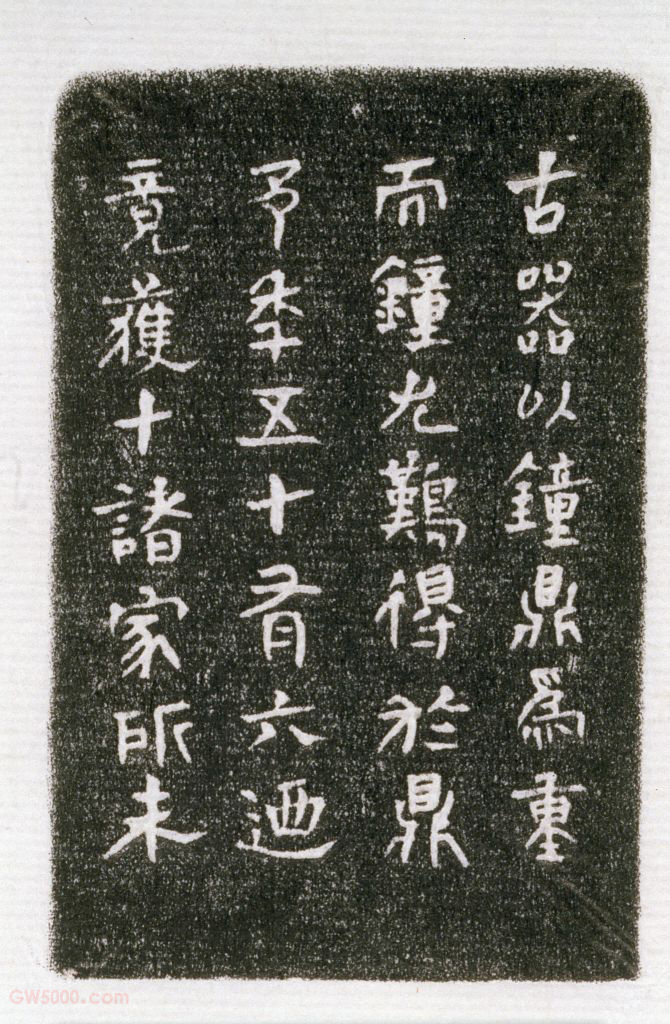 古器以鐘鼎爲重
而鐘尤難得於鼎
予秊五十有六迺
竟獲十諸家所未
GW5000.com